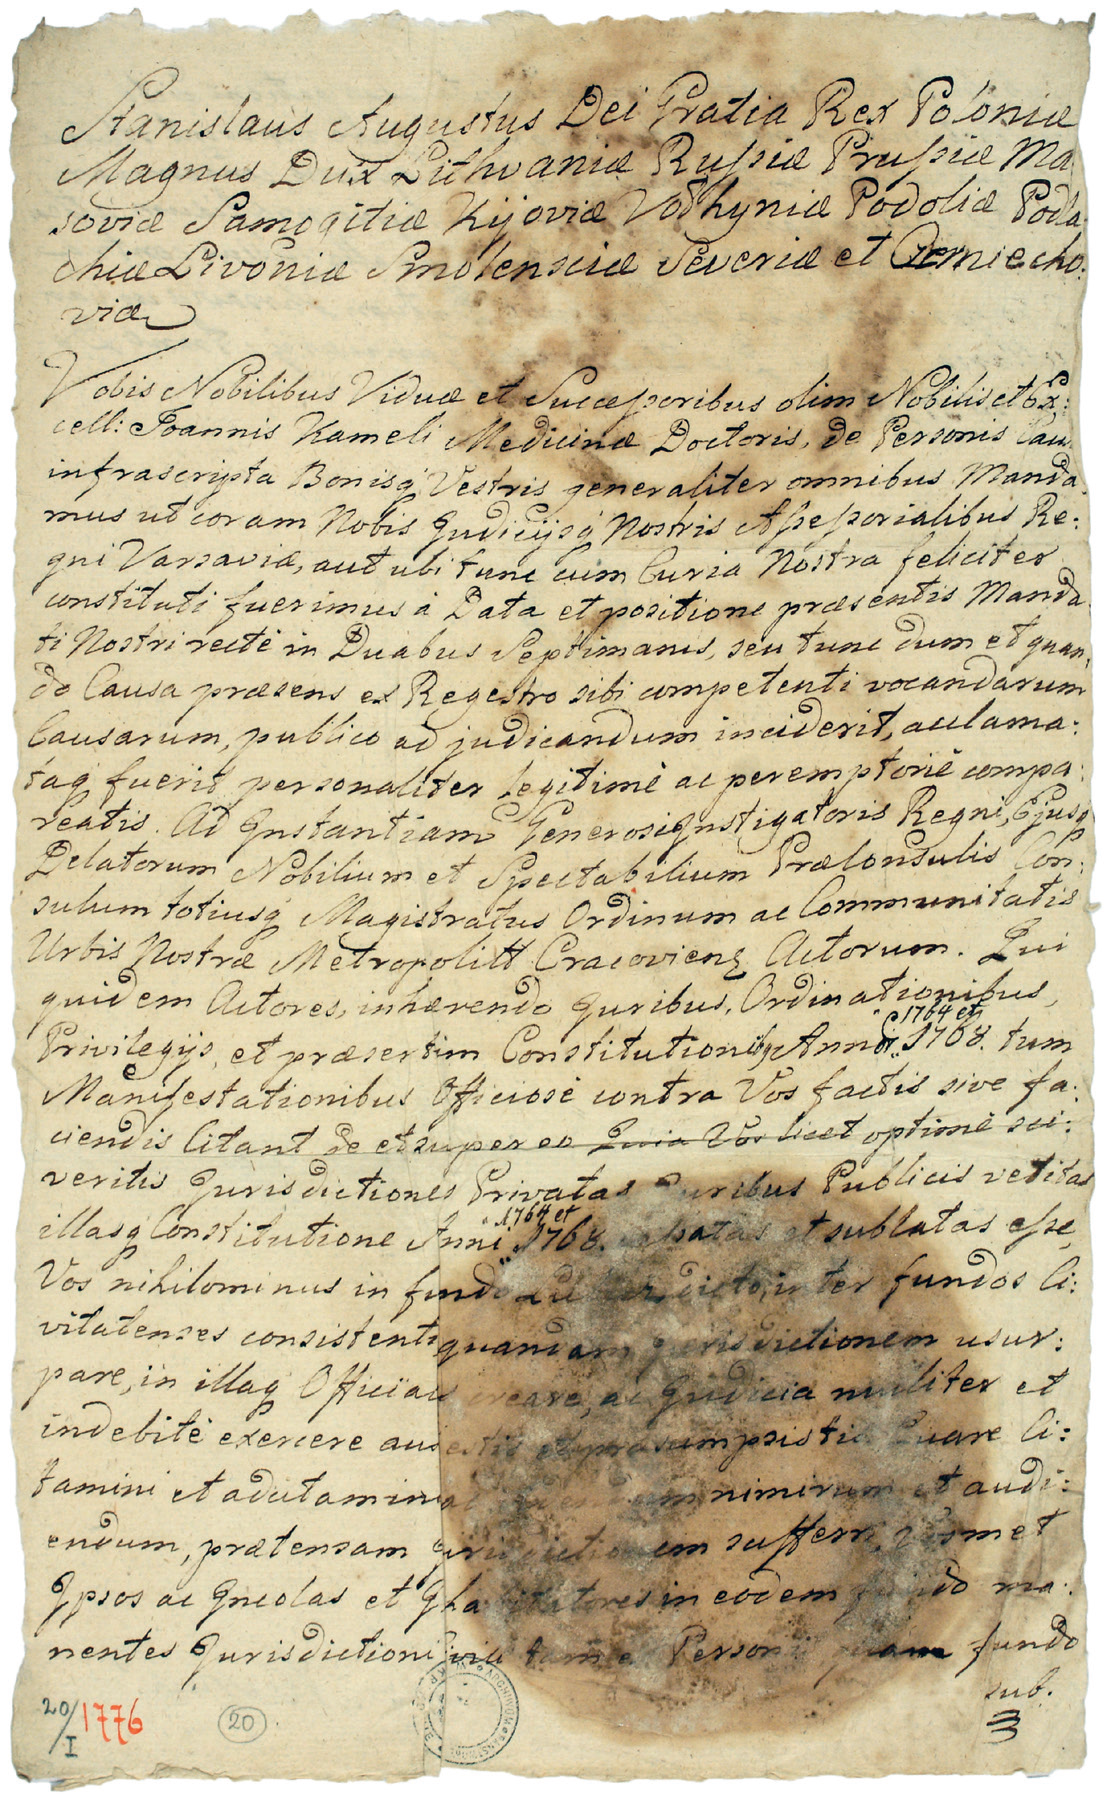 Stanislaus Augustus Dei Gratia Rex Poloniæ
Magnus Dux Lithvaniæ Rußiæ Prußiæ Ma
soviæ Samogitiæ Kijoviæ Volhyniæ Podoliæ Podla
chiæ Livoniæ Smolensciæ Severiæ et Czerniecho:
viæ
Vobis Nobilibus Viduæ et Succeßoribus olim Nobilis et Ex:
cell: Joannis Kameli Medicinæ Doctoris, de Personis Cau
infrascripta Bonisq́ Vestris generaliter omnibus Manda
mus ut coram Nobis Judicijsq́ Nostris Aßeßorialibus Re:
gni Varsaviæ, aut ubi tunc cum Curia Nostra feliciter
constituti fuerimus à Data et positione præsentis Manda
ti Nostri rectè in Duabus Septimanis, seu tunc dum et quan
do Causa præsens ex Regestro sibi competenti vocandarum
Causarum, publico ad judicandum inciderit, acclama:
taq́ fuerit personaliter legitimè ac peremptoriè compa:
reatis. Ad Instantiam Generosi Instigatoris Regni, Ejusq́
Delatorum Nobilium et Spectabilium Præconsulis Con:
sulum totiusq́ Magistratus Ordinum ac Communitatis
Urbis Nostræ Metropolitt Cracovienz Actorum. Qui
quidem Actores, inhærendo Juribus, Ordinationibus,
1764 et
Privilegijs, et præsertim Constitutionibq Anni 1768. tum
Manifestationibus Officiosè contra Vos factis sive fa:
ciendis Citant de et super eo Quia Vos licet optimè sci:
veritis Jurisdictiones Privatas Juribus Publicis vetitas
1764 et
illasq́ Constitutione Anni 1768. et sublatas eße,
Vos nihilominus in fundo dicto, inter fundos Ci:
vitatenses consistenti quandam Jurisdictionem usur:
pare, in illaq́ Officiau creare, ac Judicia nulliter et
indebitè exercere ausi estis et præsumpsistis Quare Ci:
tamini et adcitamini ad nimirum et audi:
endum, prætensam Jurisdictionem sufferri, Vosmet
Ipsos ac Incolas et Inhabitatores in eodem fundo ma:
nentes Jurisdictioni Civili tam e Personis quam fundo
sub:
20/I 1776
20